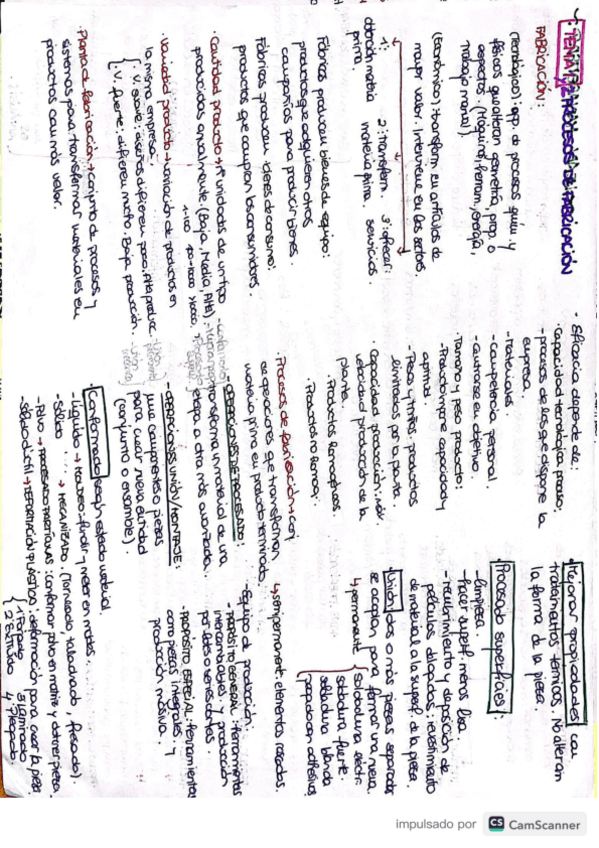 TEMA 2 PROCESOS DE FABRICACIÓN
FABRICACIÓN:
(Tecnológico): app. d procesos quím. y
físicos que alteran geometría, prop. o
aspectos. (Maquinas, herram, energía,
trabajo manual).
(Económico): transform. en artículos de
mayor valor. Intervienen en los sectores.
1: 2: transform. 3: ofrecer:
obtención materia materia prima. servicios.
prima.
Fábricas producen bienes de equipo:
productos que adquieren otras
compañías para producir bienes.
Fábricas producen bienes de consumo:
productos que compran los consumidores.
· Cantidad producto → nº unidades de un tipo
producidas anualmente. (Baja, Media, Alta).
1-100 100-10000 >10000
· Variedad producto → variación de productos en
la misma empresa.
· v. suave: diseños difieren poco. Alta produce.
· v. fuerte: difieren mucho. Baja producción.
· Planta d fabricación → conjunto de procesos y
sistemas para transformar materiales en
productos con más valor.
· Eficacia depende de:
· capacidad tecnológica proceso:
- procesos de los que dispone la
empresa.
- materiales.
- competencia personal
- centrarse en objetivo.
· Tamaño y peso producto:
- Producto impone capacidad y
aptitud.
- Pesos y tmños productos
eliminados por la planta.
· Capacidad producción: máx.
velocidad producción de la
planta.
· Productos homogéneos
· Productos no homog.
· Procesos de fabricación → conj.
de operaciones que transforman
materia prima en producto terminado.
- OPERACIONES DE PROCESADO:
transforma un material de una
etapa a otra más avanzada.
- OPERACIONES UNIÓN/MONTAJE:
une componentes o piezas
para crear nueva entidad
(conjunto o ensamble).
· Conformado según estado material.
- Líquido → moldeo - fundir y meter en moldes.
- Sólido → MECANIZADO. (Torneado, taladrado, fresado).
- Polvo → PROCESADO PARTÍCULAS: conformar polvo en matriz y obtener pieza.
- Sólido dúctil → DEFORMACIÓN PLÁSTICA: deformación para crear la pieza
1 Forjado 3 Laminado
2 Extruido 4 Plegado
· Mejorar propiedades con
tratamientos térmicos. No alteran
la forma de la pieza.
· Procesado superficies:
- limpieza.
- hacer superf. menos lisa.
- recubrimiento y deposición de
películas delgadas: revestimiento
de material a la superf. d la pieza.
· Unión: dos o más piezas separadas
se acoplan para formar una nueva.
↳ permanente
soldadura eléctr.
soldadura fuerte
soldadura blanda
pegado con adhesivos
↳ semipermanente: elementos roscados.
- Equipo de producción:
- PROPÓSITO GENERAL: herramientas
intercambiables y producción
por lotes o series cortas.
- PROPÓSITO ESPECIAL: herramientas
como piezas integrales y
producción másiva.
impulsado por CS CamScanner